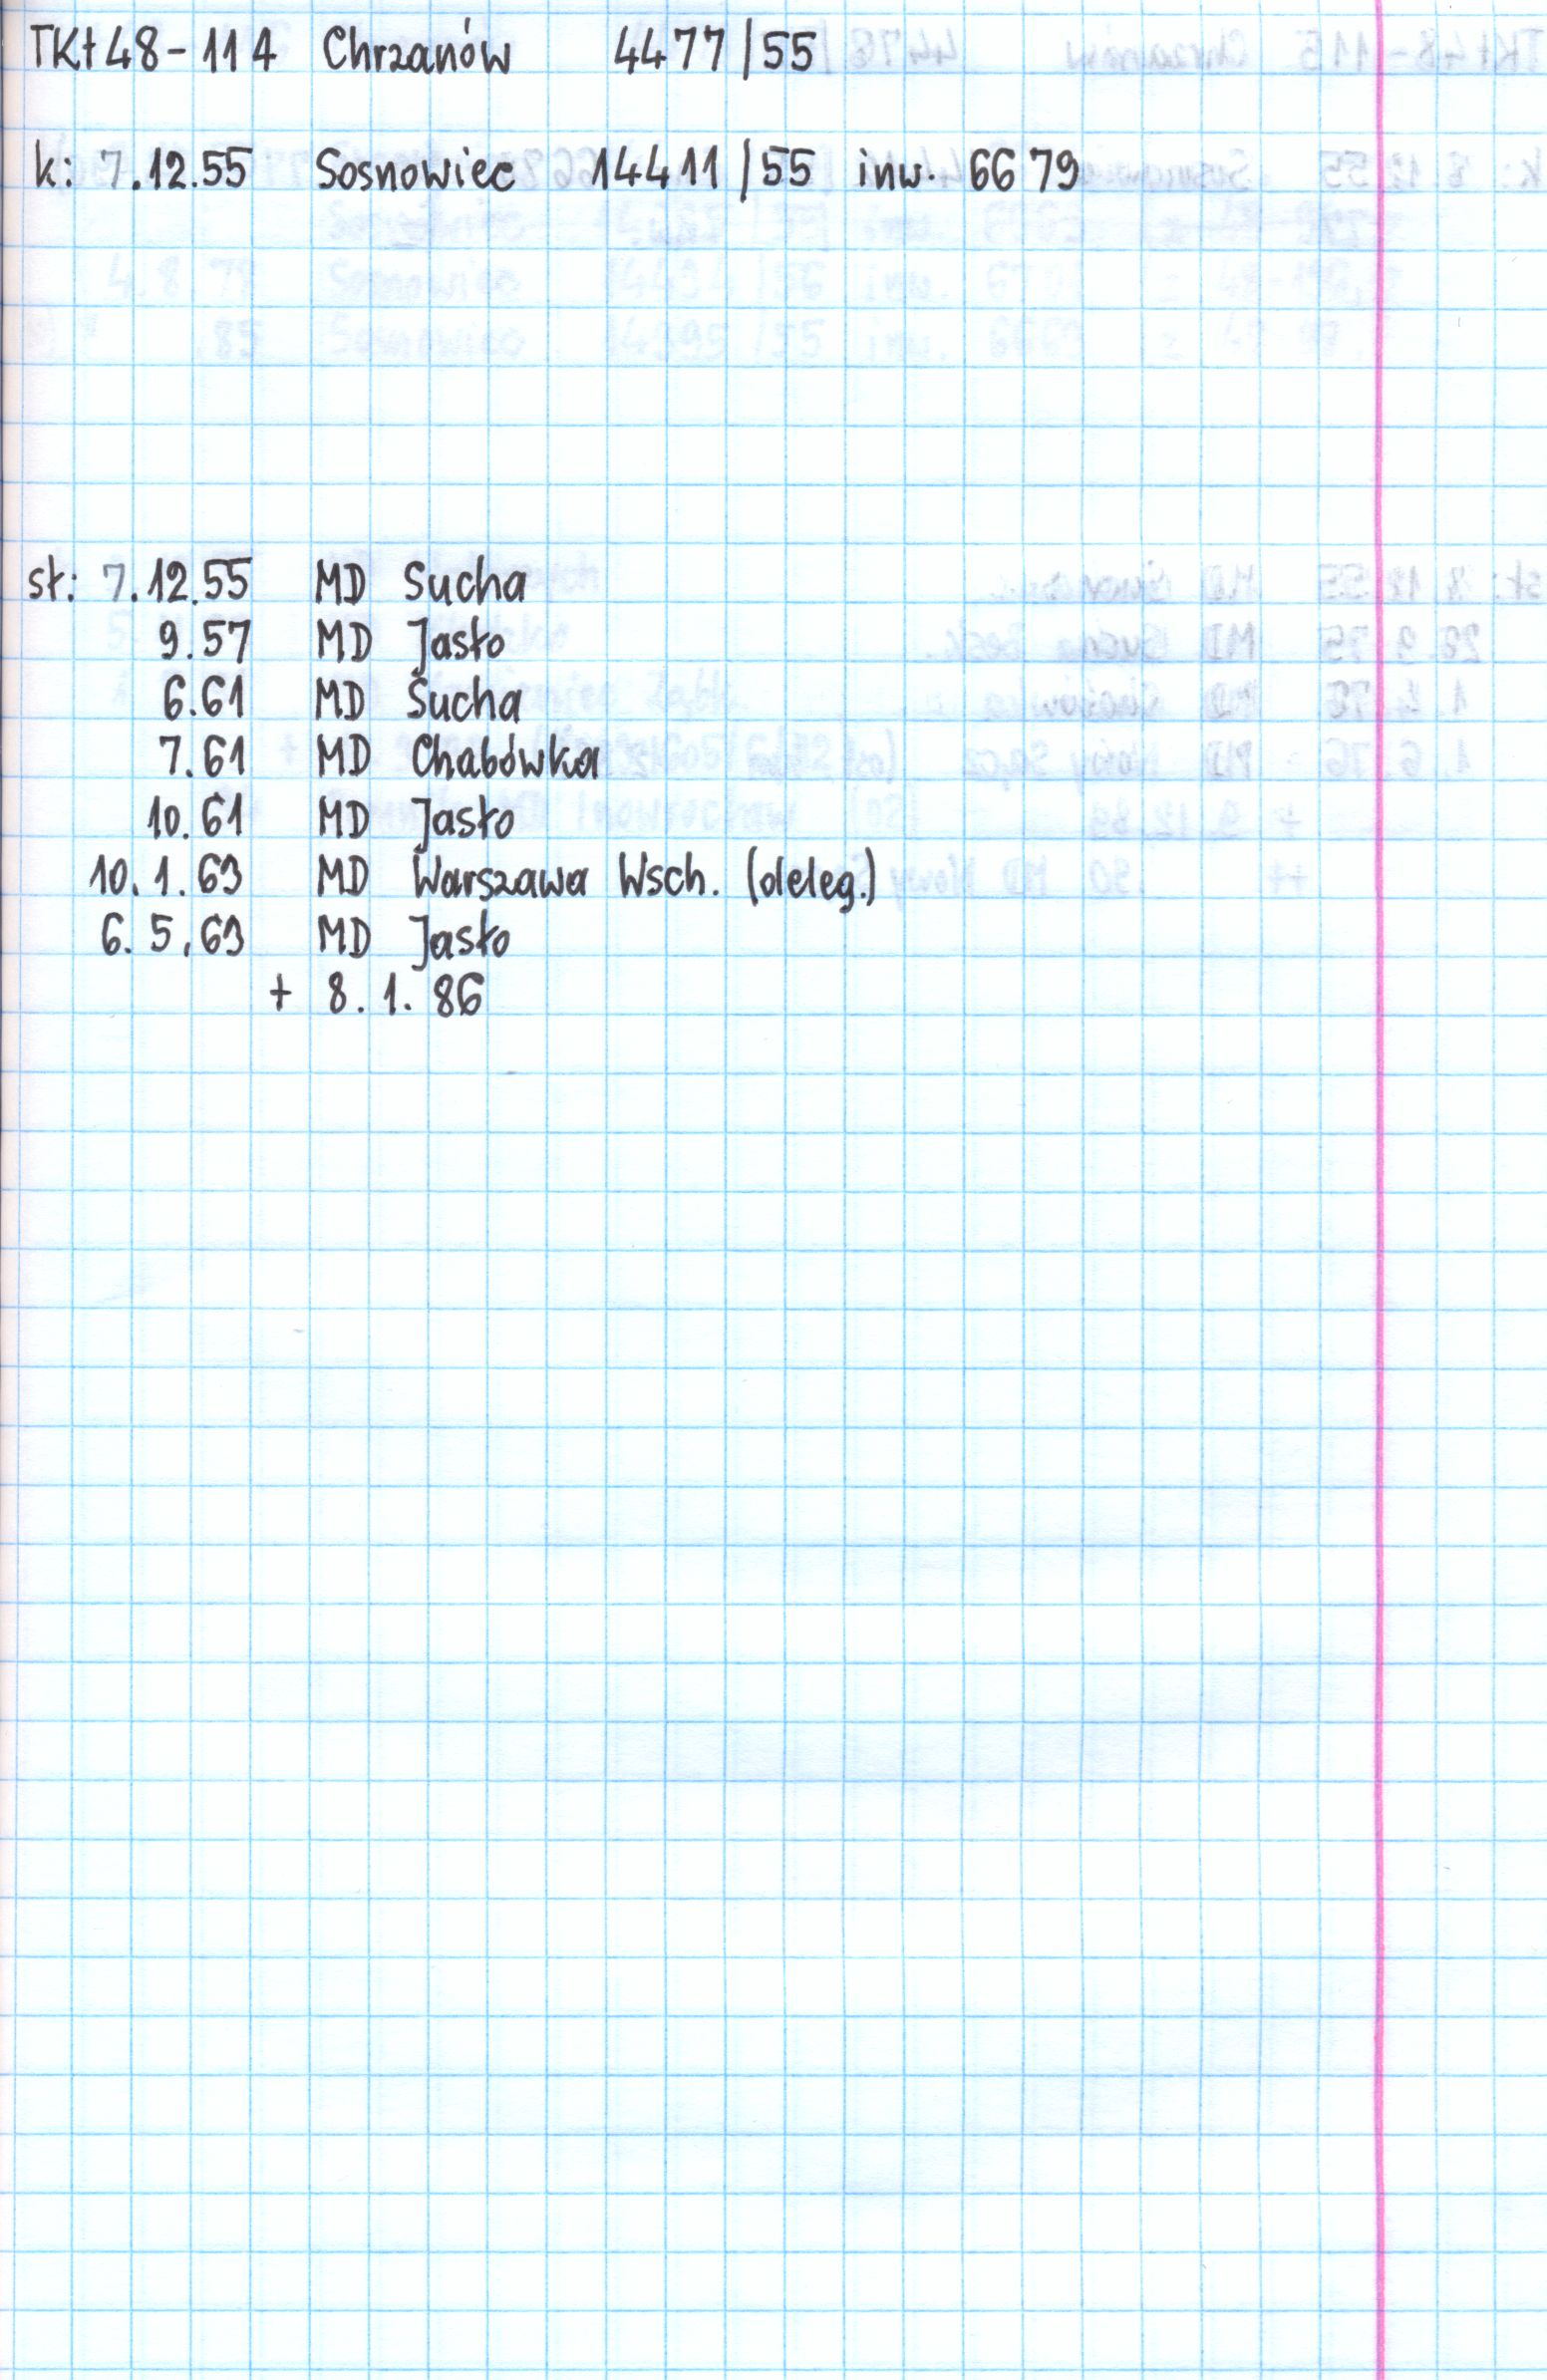 TKt48-114 Chrzanów 4477/55
k: 7.12.55 Sosnowiec 14411/55 inw. 6679
st: 7.12.55 MD Sucha
9.57 MD Jasło
6.61 MD Sucha
7.61 MD Chabówka
10.61 MD Jasło
10.1.63 MD Warszawa Wsch. (deleg.)
6.5.63 MD Jasło
+ 8.1.86